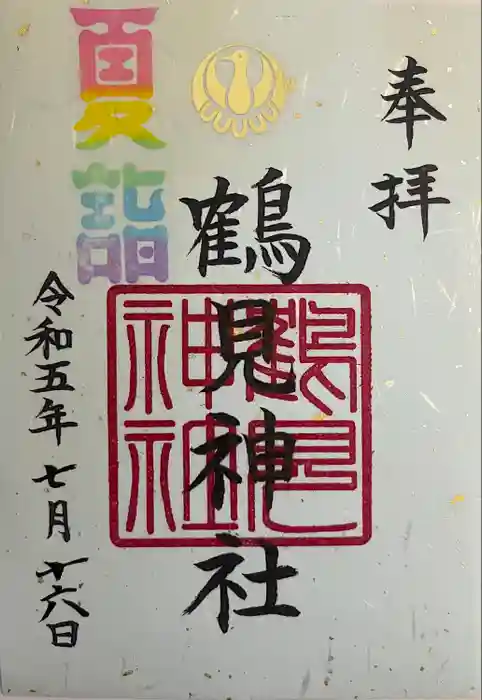 奉拝
鶴見神社
鶴見神社
夏詣
令和五年七月十六日